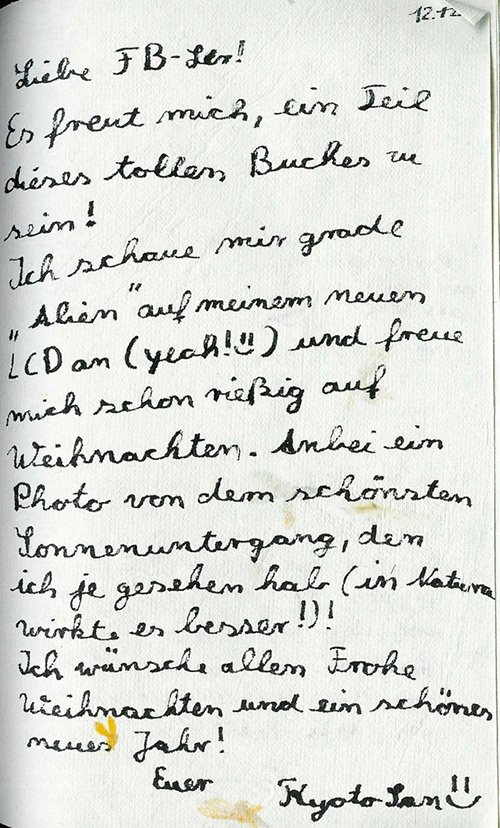 12.12.
Liebe FB-ler!
Es freut mich, ein Teil
dieses tollen Buches zu
sein!
Ich schaue mir grade
„Alien“ auf meinem neuen
LCD an (yeah! ü) und freue
mich schon rießig auf
Weihnachten. Anbei ein
Photo von dem schönsten
Sonnenuntergang, den
ich je gesehen hab (in Natura
wirkte es besser!)!
Ich wünsche allen Frohe
Weihnachten und ein schönes
neues Jahr!
Euer
Kyoto San ü